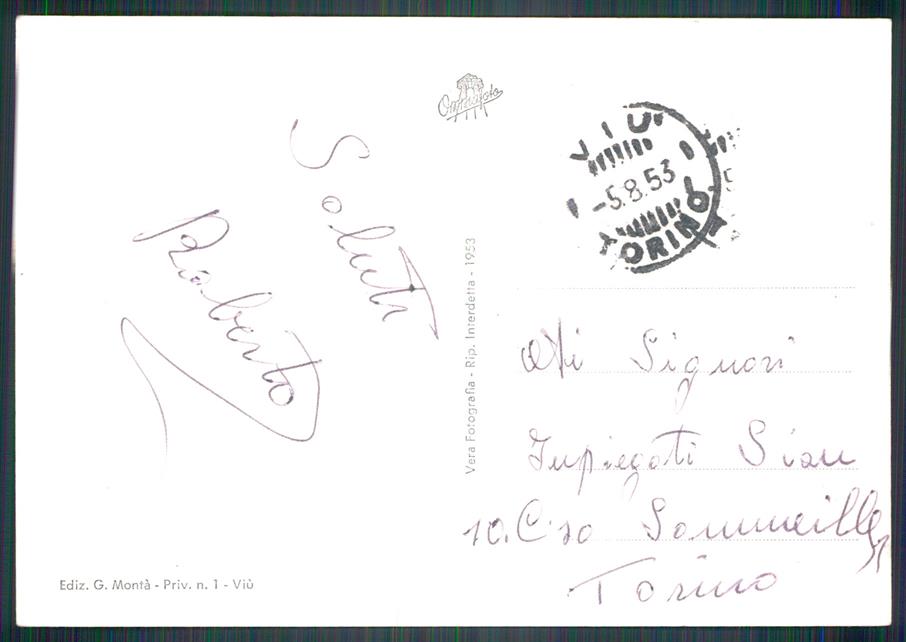 Omniafoto
VIÙ
-5.8.53
TORINO
Saluti
Roberto
Vera Fotografia - Rip. Interdetta - 1953
Signori
Impiegati Siau
10. C.so Sommeiller
Torino
Ediz. G. Montà - Priv. n. 1 - Viù